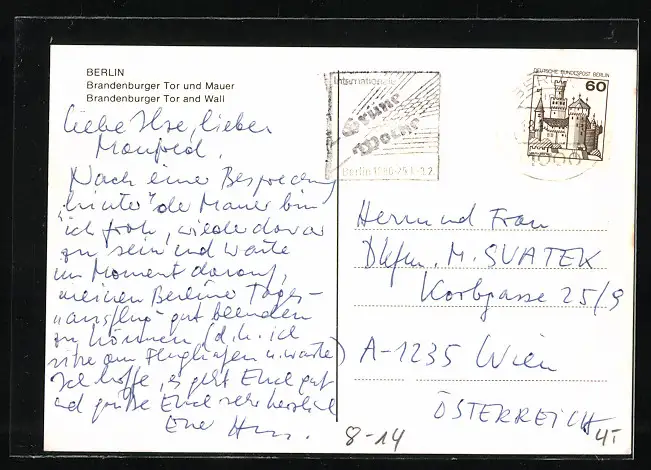 BERLIN
Brandenburger Tor und Mauer
Brandenburger Tor and Wall
Liebe Ilse, lieber
Manfred,
Nach einer Besprechung
"hinter" der Mauer bin
ich froh, wieder davor
zu sein und warte
im Moment darauf,
meinen Berliner Tages-
"ausflug" gut beenden
zu können (d.h. ich
sitze am Flughafen u. warte)
Ich hoffe, es geht Euch gut
und grüße Euch sehr herzlich
Euer
Internationale
Grüne
Woche
Berlin 1986 · 2.2.
DEUTSCHE BUNDESPOST BERLIN
60
1000
Herrn und Frau
Dkfm. M. SVATEK
Korbgasse 25/9
A-1235 Wien
ÖSTERREICH
8-14